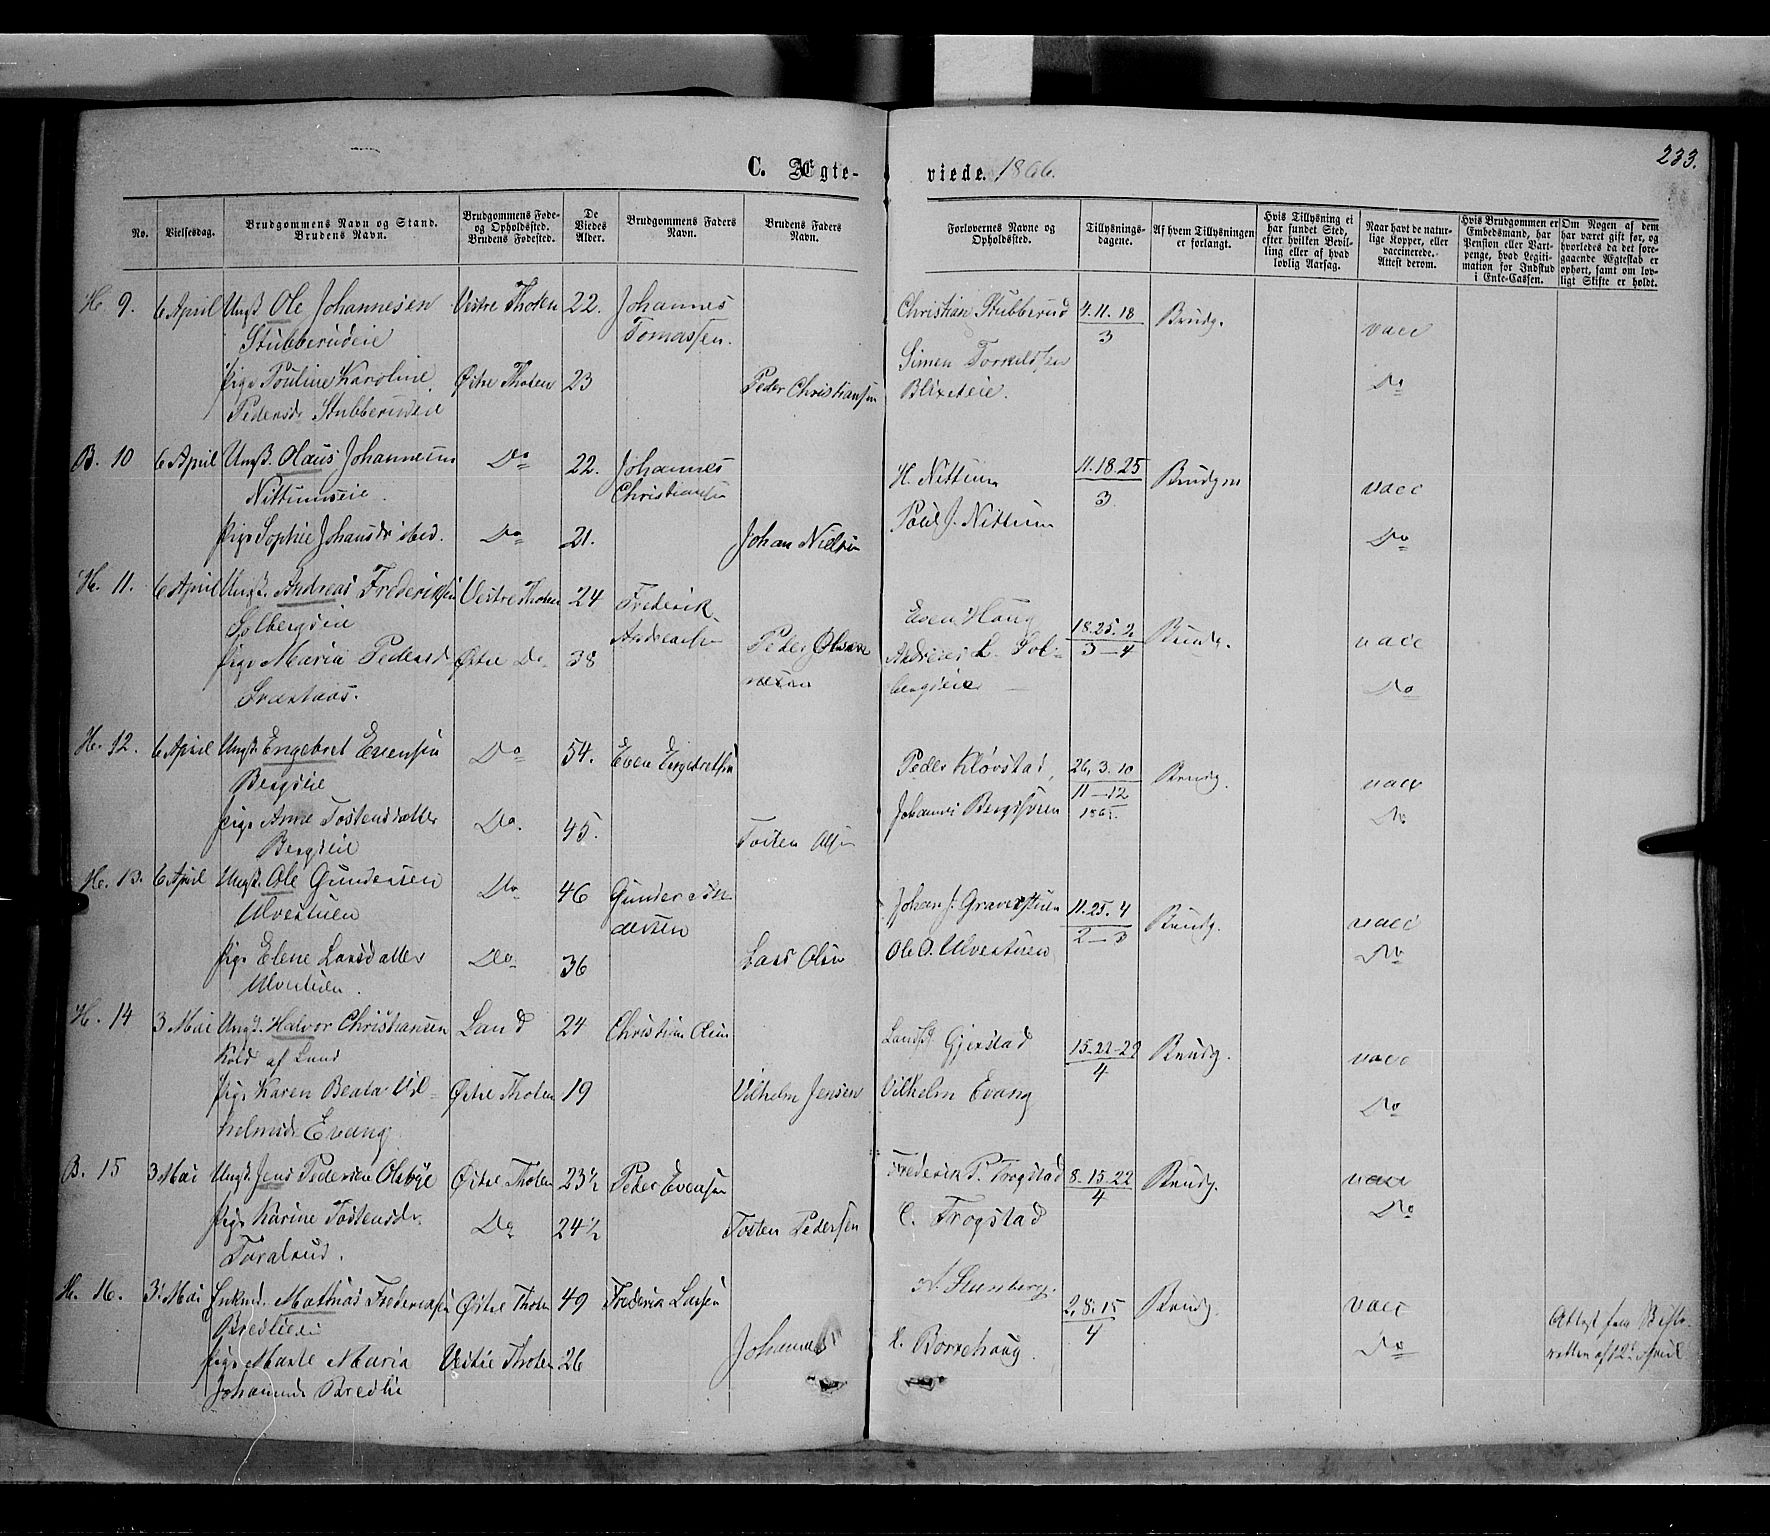 C. Ægte-viede. 1866.
233.
No. Vielsesdag. Brudgommens Navn og Stand. Brudens Navn. Brudgommens Føde- og Opholdssted. Brudens Fødested. De Viedes Alder. Brudgommens Faders Navn. Brudens Faders Navn. Forlovernes Navne og Opholdssted. Tillysnings-dagene. Af hvem Tillysningen er forlangt. Hvis Tillysning ei har fundet Sted, efter hvilken Bevilling eller af hvad lovlig Aarsag. Naar havt de naturlige Kopper, eller vaccinerede. Attest derom. Hvis Brudgommen er Embedsmand, har Pension eller Vartpenge, hvad Legitimation for Indskud i Enke-Cassen. Om Nogen af dem har været gift før, og hvorledes da det foregaaende Ægteskab er ophørt, samt om lovligt Skifte er holdt.
H. 9. 6 April Ungk. Ole Johannesen Vestre Thoten 22. Johannes Christian Stubberud 4. 11. 18 Brudg. vacc
Stubberudeie Tomassen. 3
Pige Pouline Karoline Østre Thoten 23 Peder Christiansen Simen Torkildsen Do
Pedersd. Stubberudeie Blixeteie.
B. 10 6 April Ungk. Olaus Johannesen Do 22. Johannes H. Nettum 11. 18. 25 Brudgm vacc
Nettumseie. Christiansen 3.
Pige Sophie Johansdr ibid. Do 21. Johan Nielsen Poul J. Nettum Do
H. 11. 6 April Ungk. Andreas Frederiksen Vestre Thoten 24 Frederik Even Haug 18. 25. 2 Brudg. vacc
Solbergseie Andreassen 3 - 4
Pige Maria Pedersd. Østre Do 38 Peder Olsen Andreas L. Sol- Do
bergseie
H. 12. 6 April Ungk. Engebret Evensen Do 54. Even Engebretsen Peder Kløvstad, 26. 3. 10 Brudg. vacc
Bergseie 11 - 12
Pige Anne Tostensdatter Do. 45. Tosten Olsen Johannes 1865. Do
Bergseie
H. 13. 6 April Ungk. Ole Gundersen Do 46 Gunder Johan J. 11. 25. 4 Brudg. vacc
Ulvestuen 2 - 3
Pige Elene Larsdatter Do 36 Lars Olsen Ole O. Ulvestuen Do
Ulvestuen.
H. 14 3 Mai Ungk. Halvor Christiansen Land 24 Christian Olsen Gjixstad 15-22-29 Brudg. vacc
Kold af Land 4
Pige Karen Beata Vil- Østre Thoten 19 Vilhelm Jensen Vilhelm Evang Do
helmsdr Evang
B. 15 3 Mai Ungk. Jens Pedersen Olsbye Østre Thoten 23½ Peder Evensen Frederik P. Frogstad 8. 15. 22 Brudg. vacc
4
Pige Karine Tostensdr. Do 24½ Tosten Pedersen C. Frogstad Do
Taralrud.
H. 16. 3 Mai Enkmd. Mathias Fredriksen Østre Thoten 49 Frederik Larsen N. Stenberg. 2. 8. 15 Brudg. vacc Attest fra Skifte-
Bredlieeie 4 retten af 12 April
Pige Marte Maria Vestre Thoten 26 Johannes C. Borchaug. Do
Johannesd. Bredlie